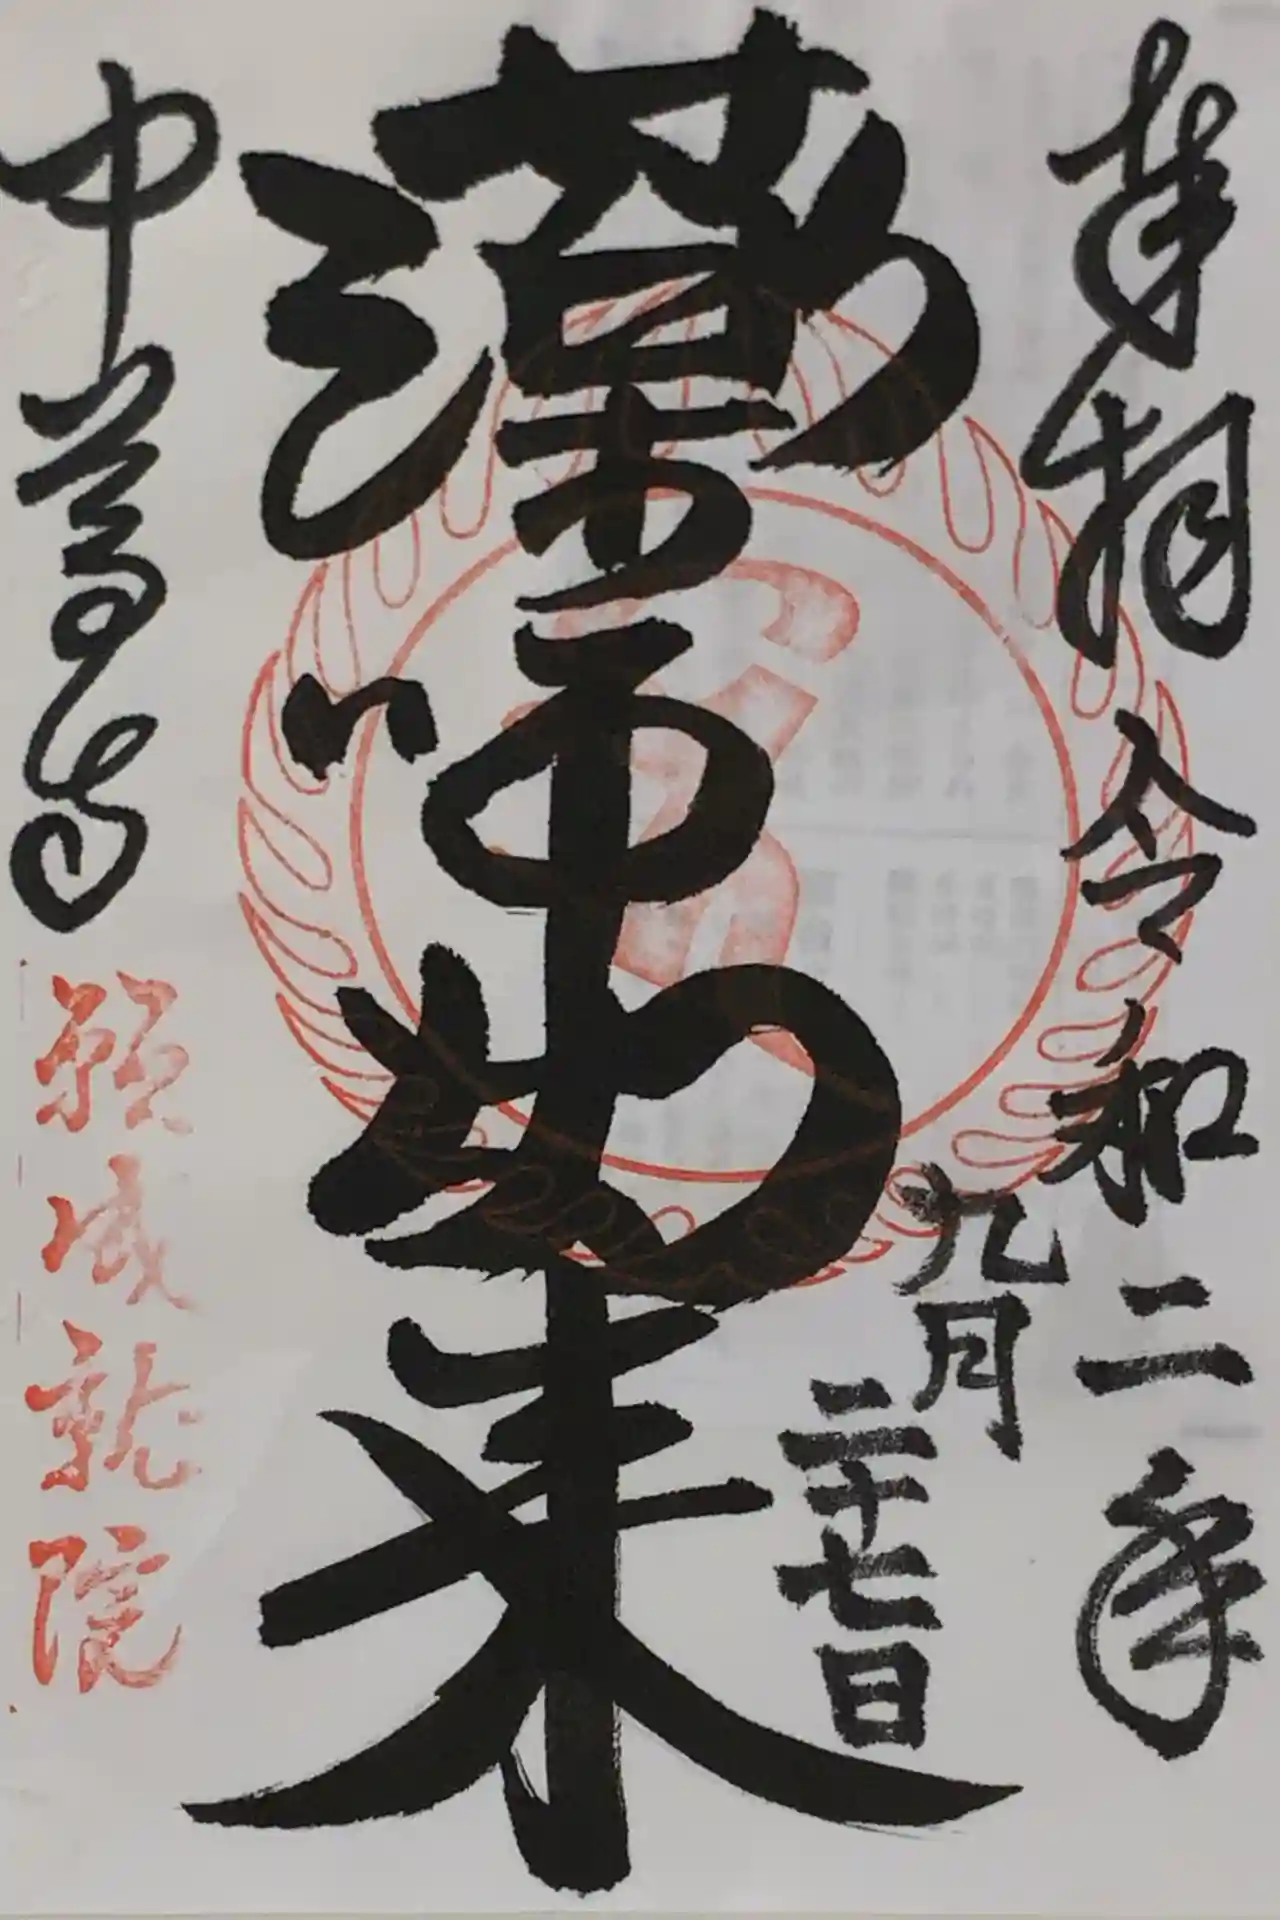 奉拝 令和二年
九月
二十七日
薬師如来
中尊寺 願成就院